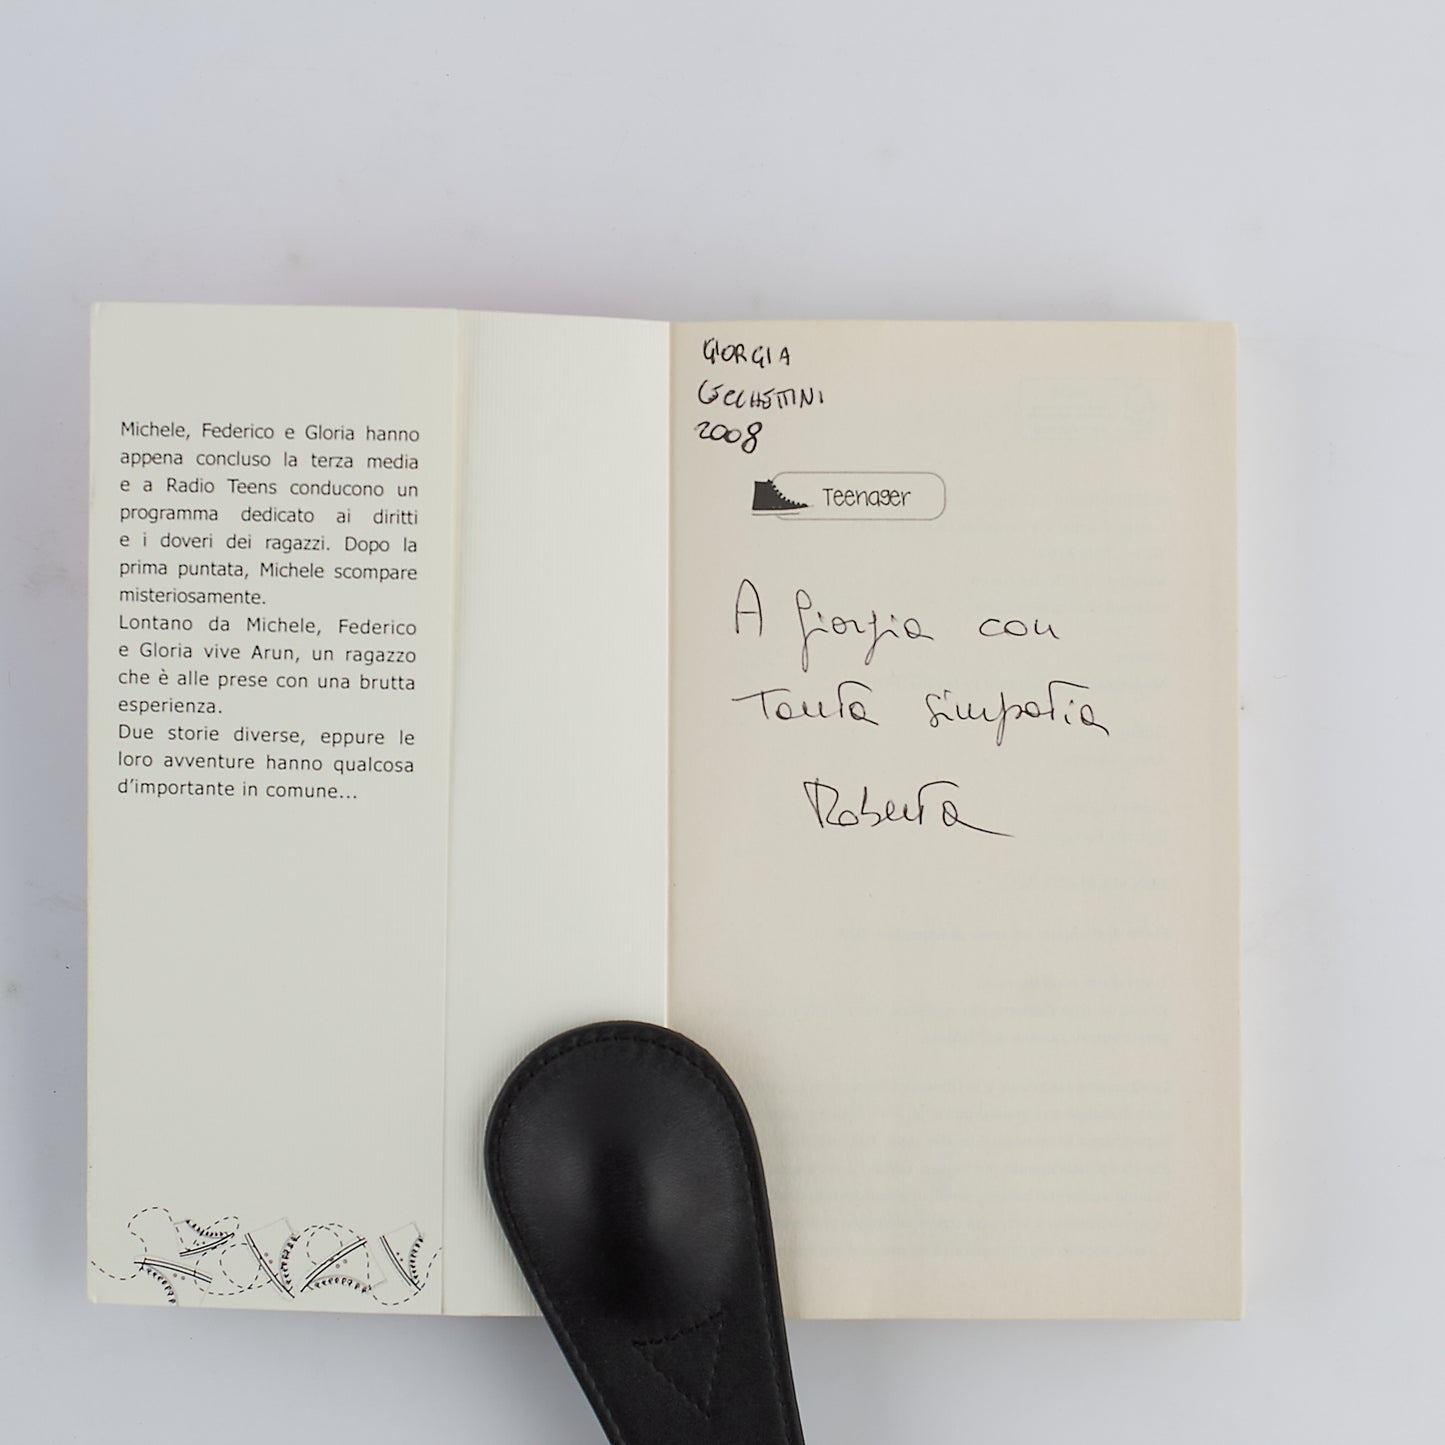 Michele, Federico e Gloria hanno
appena concluso la terza media
e a Radio Teens conducono un
programma dedicato ai diritti
e i doveri dei ragazzi. Dopo la
prima puntata, Michele scompare
misteriosamente.
Lontano da Michele, Federico
e Gloria vive Arun, un ragazzo
che è alle prese con una brutta
esperienza.
Due storie diverse, eppure le
loro avventure hanno qualcosa
d'importante in comune...
GIORGIA
2008
Teenager
A Giorgia con
Tanta simpatia
Roberta